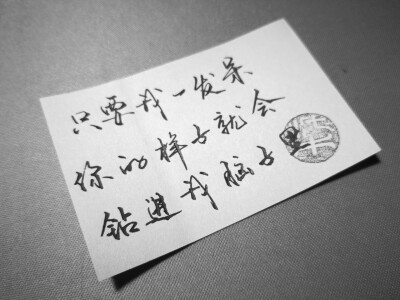 只要我一发呆
你的样子就会
钻进我脑子里